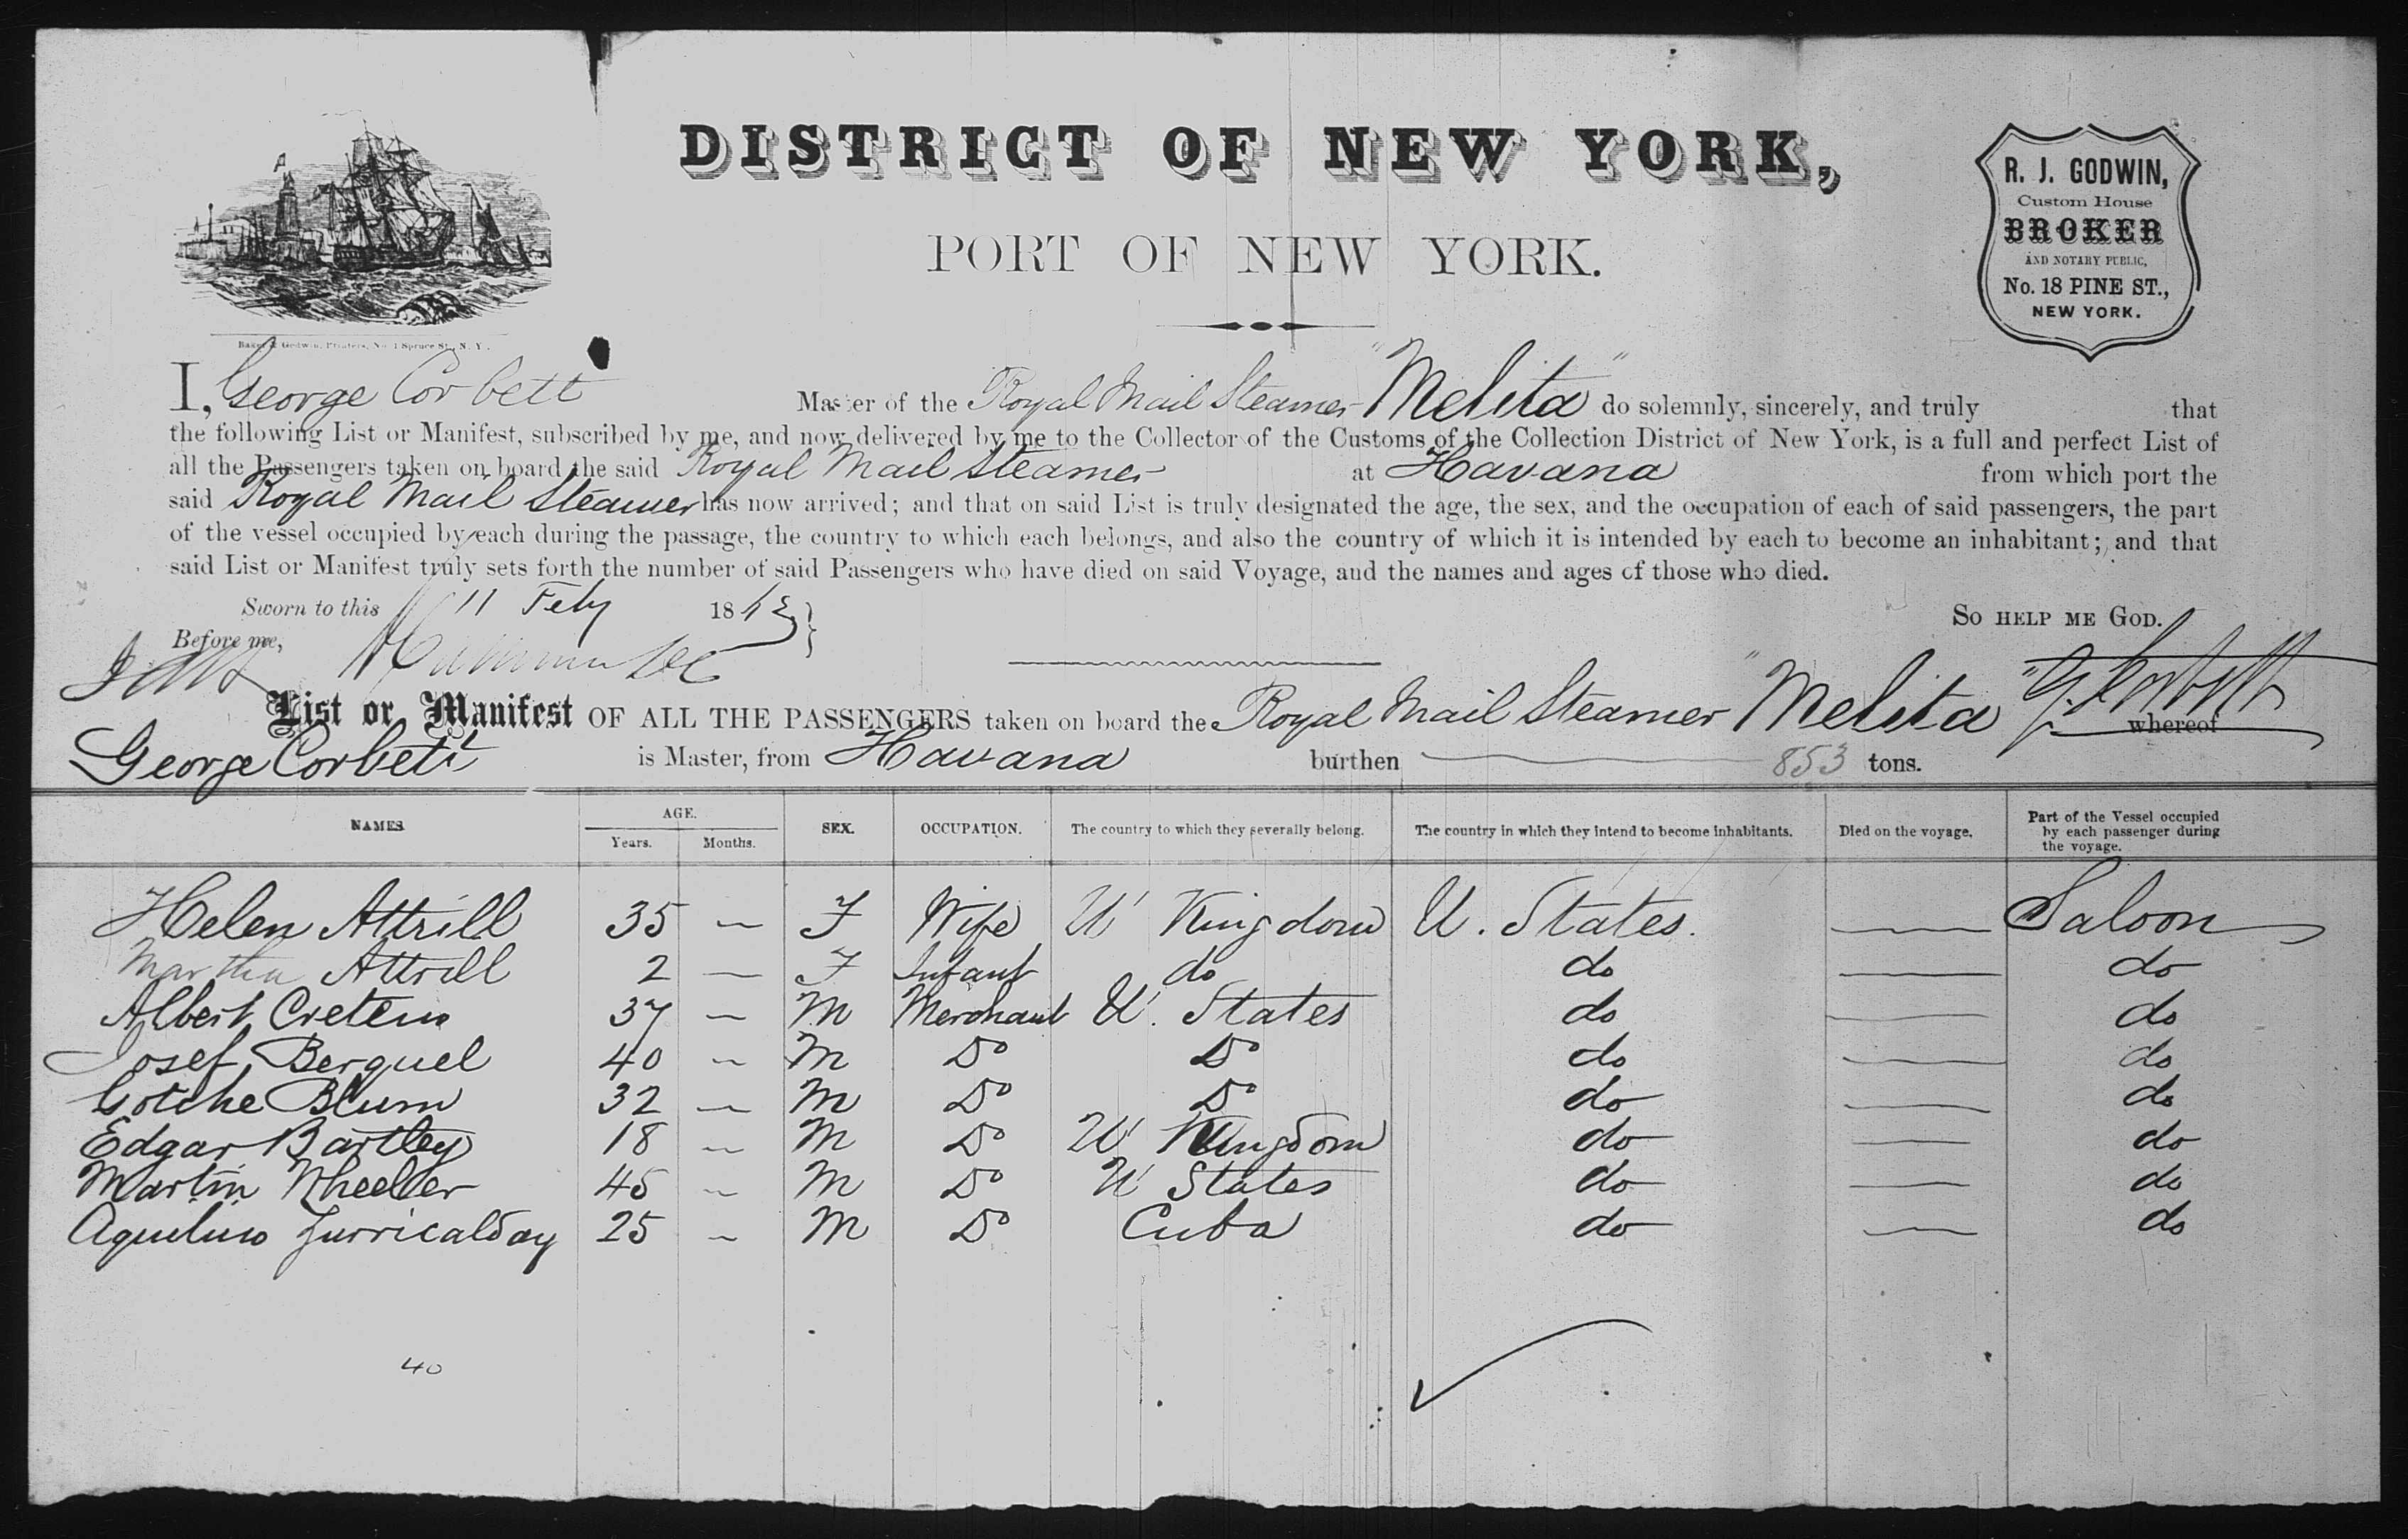 DISTRICT OF NEW YORK,
PORT OF NEW YORK.
R. J. GODWIN,
Custom House
BROKER
AND NOTARY PUBLIC,
No. 18 PINE ST.,
NEW YORK.
Baker & Godwin, Printers, No. 1 Spruce St., N. Y.
I, George Corbett Master of the Royal Mail Steamer "Melita" do solemnly, sincerely, and truly that
the following List or Manifest, subscribed by me, and now delivered by me to the Collector of the Customs of the Collection District of New York, is a full and perfect List of
all the Passengers taken on board the said Royal Mail Steamer at Havana from which port the
said Royal Mail Steamer has now arrived; and that on said List is truly designated the age, the sex, and the occupation of each of said passengers, the part
of the vessel occupied by each during the passage, the country to which each belongs, and also the country of which it is intended by each to become an inhabitant; and that
said List or Manifest truly sets forth the number of said Passengers who have died on said Voyage, and the names and ages of those who died.
Sworn to this 11 Feby 1863
So help me God.
Before me,
G. Corbett
List or Manifest OF ALL THE PASSENGERS taken on board the Royal Mail Steamer "Melita" whereof
George Corbett is Master, from Havana burthen 853 tons.
NAMES AGE. Years. Months. SEX. OCCUPATION. The country to which they severally belong. The country in which they intend to become inhabitants. Died on the voyage. Part of the Vessel occupied by each passenger during the voyage.
Helen Attrill 35 — F Wife U Kingdom U. States. — Saloon
Martha Attrill 2 — F Infant do do — do
Albert Cretem 37 — M Merchant U. States do — do
Josef Berquel 40 — M Do Do do — do
Gotche Blum 32 — M Do Do do — do
Edgar Bartley 18 — M Do U Kingdom do — do
Martin Wheeler 45 — M Do U States do — do
Aquelino Zurricalday 25 — M Do Cuba do — do
40